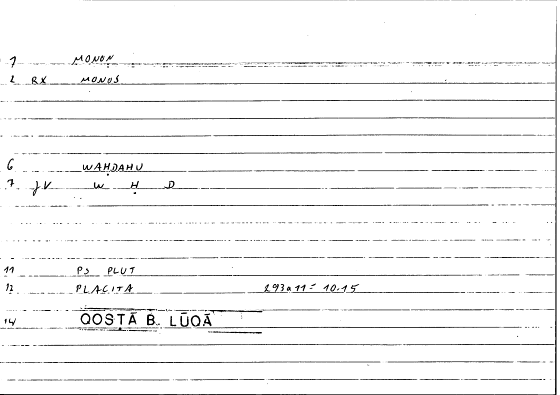 1 MONON
2 RX MONOS
6 WAḤDAHU
7 JV W Ḥ D
11 PS PLUT
12 PLACITA 293a11 = 10.15
14 QOSṬĀ B. LŪQĀ